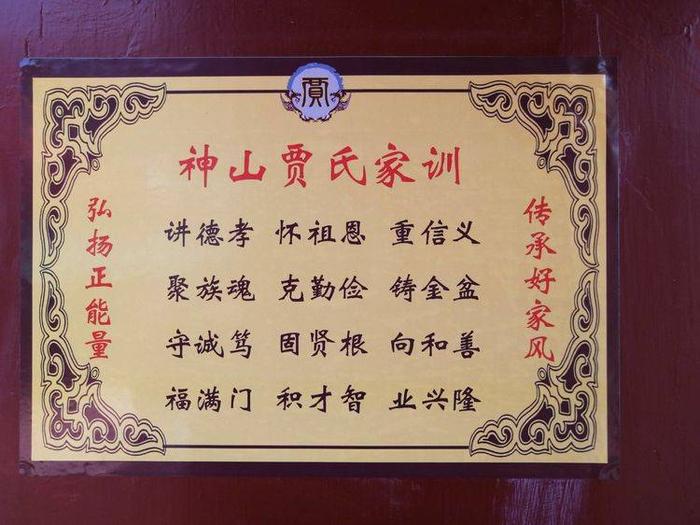 賈
神山贾氏家训
弘扬正能量
讲德孝 怀祖恩 重信义
聚族魂 克勤俭 铸金盆
守诚笃 固贤根 向和善
福满门 积才智 业兴隆
传承好家风